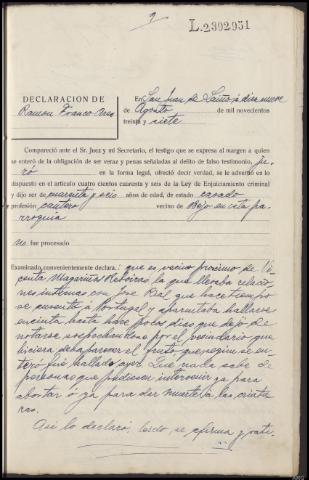 2
L.2392931
DECLARACION DE
Ramon Franco
En San Juan de a diez nueve
de Agosto de mil novecientos
treinta y siete
Compareció ante el Sr. Juez y mi Secretario, el testigo que se expresa al margen a quien
se enteró de la obligación de ser veraz y penas señaladas al delito de falso testimonio, ju
ró en la forma legal, ofreció decir verdad, se le advertió es lo
dispuesto en el artículo cuatro cientos cuarenta y seis de la Ley de Enjuiciamiento criminal
y dijo ser de cuarenta y seis años de edad, de estado casado
profesión cantero vecino de Bejo en esta pa-
rroquia
no fue procesado
Examinado convenientemente declara: que es vecino proximo de Vi
centa Magariños Reboiras, la que llevaba relacio
nes intimas con Jose Rial que hace tiempo
se ausentó a Portugal y aparentaba hallarse
encinta, hasta hace pocos dias que dejó de
notarse, sospechandose por el vecindario que
hiciera desaparecer el fruto, que segun se en
teró fué hallado ayer. Que nada sabe de
personas que pudiesen intervenir ya para
abortar ó ya para dar muerte a las criatu
ras.
Asi lo declaró, leido se afirma y rati-